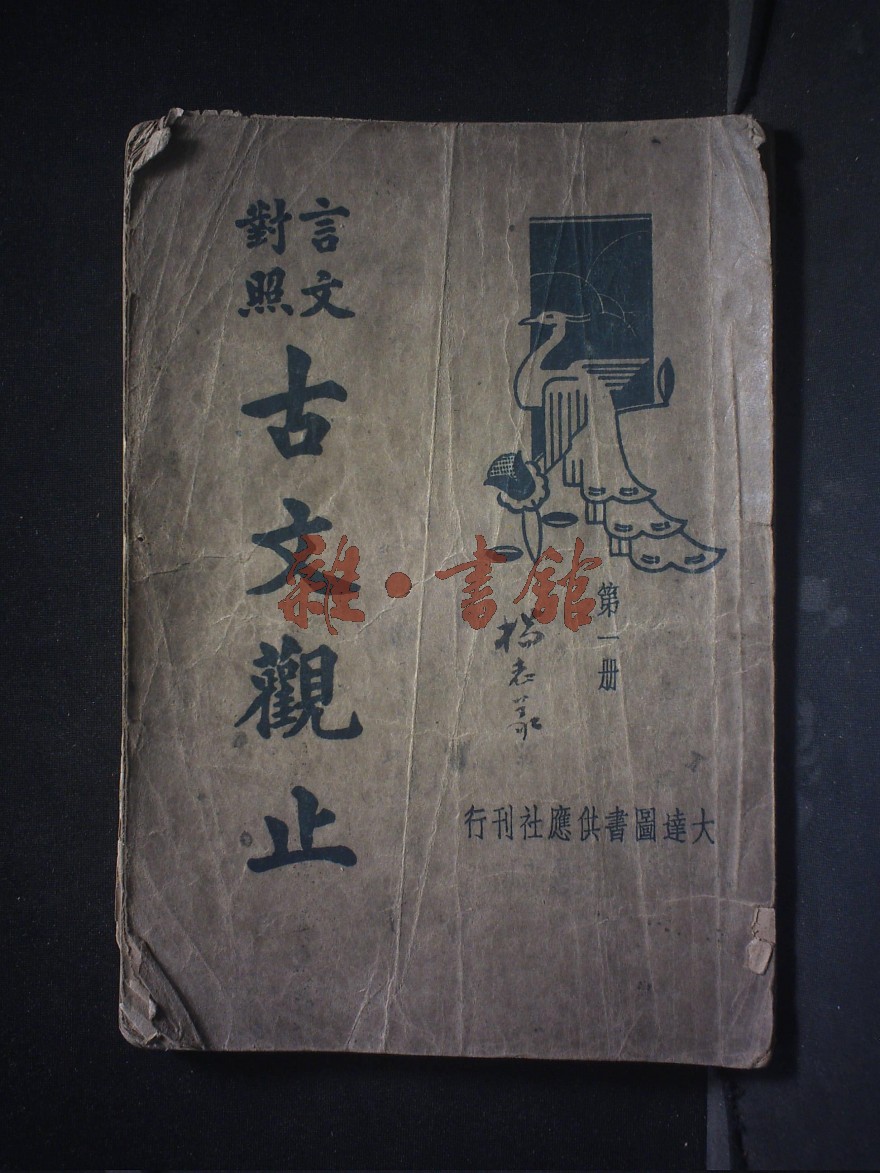 言文
對照
古文觀止
第一册
大達圖書供應社刊行
雜·書館